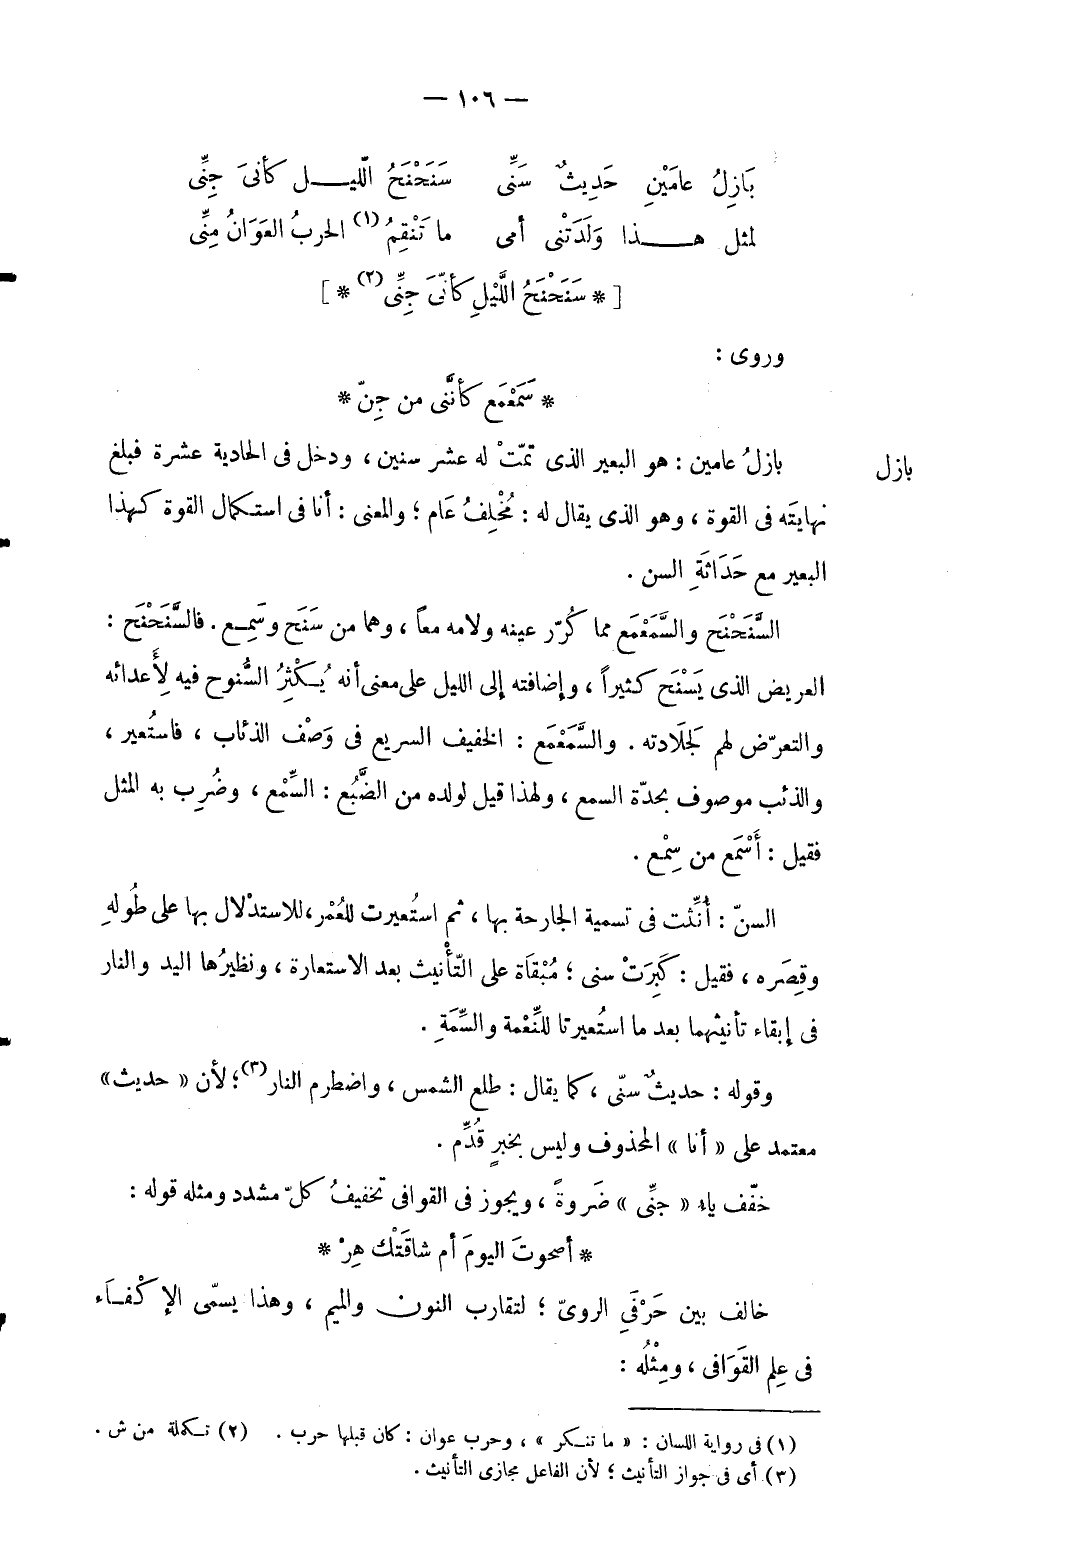 — ١٠٦ —
بَازِلُ عامَيْنِ حَدِيثٌ سَنِّى سَنَحْنَحُ الَّليـــل كأنىَ جِنِّى
لمثل هـــــذا وَلَدَتْنى أمى ما تَنْقِمُ (١) الحربُ العَوَانُ مِنِّى
[ * سَنَحْنَحُ اللَّيْلِ كأنّىَ جِنِّى (٢) * ]
وروى :
* سَمَعْمَع كأنَّنى من جِنّ *
بازل
بازلُ عامين : هو البعير الذى تمّتْ له عشر سنين ، ودخل فى الحادية عشرة فبلغ
نهايتَه فى القوة ، وهو الذى يقال له : مُخْلِفُ عَام ؛ والمعنى : أنا فى استكمال القوة كهذا
البعير مع حَدَاثَةِ السن .
السَّنَحْنَح والسَّمَعْمَع مما كُرّر عينه ولامه معاً ، وهما من سَنَح وسَمِع . فالسَّنَحْنَح :
العريض الذى يَسْنَح كثيراً ، وإضافته إلى الليل على معنى أنه يُكْثِرُ السُّنوح فيه لِأَعدائه
والتعرّض لهم لجَلَادته . والسَّمَعْمَع : الخفيف السريع فى وَصْف الذئاب ، فاستُعير ،
والذئب موصوف بحدّة السمع ، ولهذا قيل لولده من الضَّبُع : السِّمْع ، وضُرِب به المثل
فقيل : أَسْمَع من سِمْع .
السنّ : أُنِّثت فى تسمية الجارحة بها ، ثم استُعيرت للعُمْر، للاستدْلال بها على طُولهِ
وقِصَره ، فقيل : كَبِرَتْ سنى ؛ مُبْقَاة على التّأْنيث بعد الاستعارة ، ونظيرُها اليد والنار
فى إبقاء تأنيثهما بعد ما استُعيرتا للنِّعْمة والسِّمَةِ .
وقوله : حديثٌ سنّى ، كما يقال : طلع الشمس ، واضطرم النار (٣) ؛ لأن « حديث»
معتمد على « أنا » المحذوف وليس بخبرٍ قُدِّم .
خفّف ياء « جنِّى » ضَروةً ، ويجوز فى القوافى تخفيفُ كلّ مشدد ومثله قوله :
* أصحوتَ اليومَ أم شاقَتْك هِرْ *
خالف بين حَرْفَىِ الروىّ ؛ لتقارب النون والميم ، وهذا يسمّى الإكْفَاء
فى عِلم القَوَافى ، ومِثْلُه :
(١) فى رواية اللسان : « ما تنكر » ، وحرب عوان : كان قبلها حرب . (٢) تكملة من ش .
(٣) أى فى جواز التأنيث ؛ لأن الفاعل مجازى التأنيث .